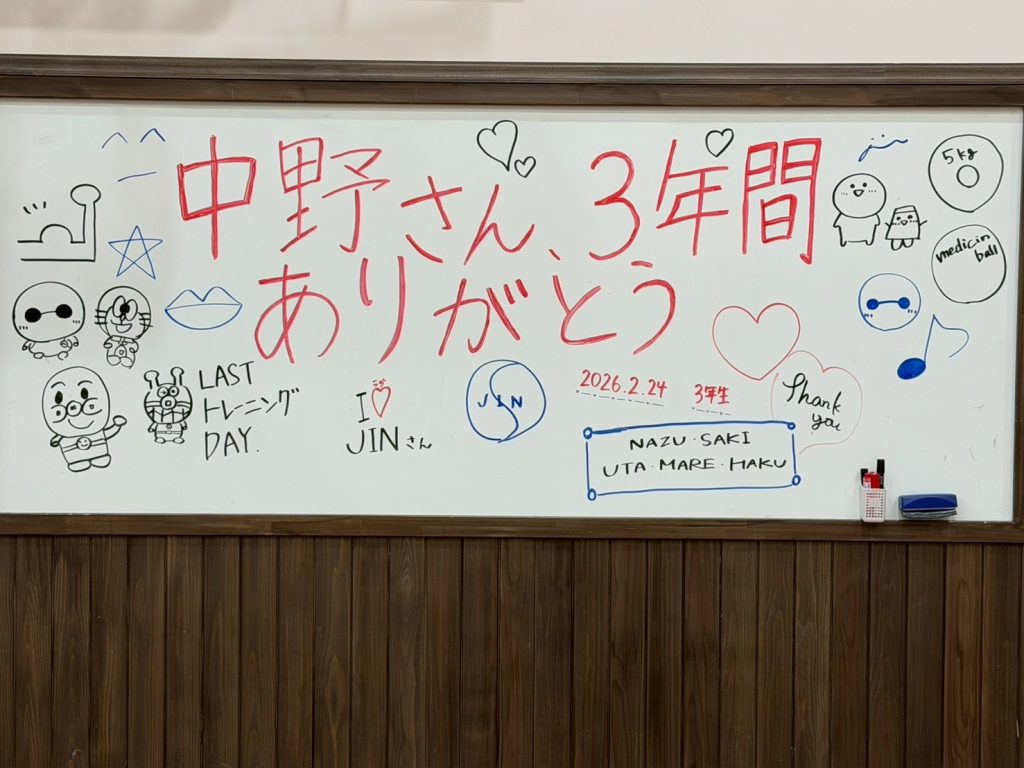 中野さん、3年間
ありがとう
jin
5kg
medicin
ball
LAST
トレーニング
DAY.
I ラヴ
JINさん
JIN
2026.2.24 3年生
Thank
you
NAZU・SAKI
UTA・MARE・HAKU